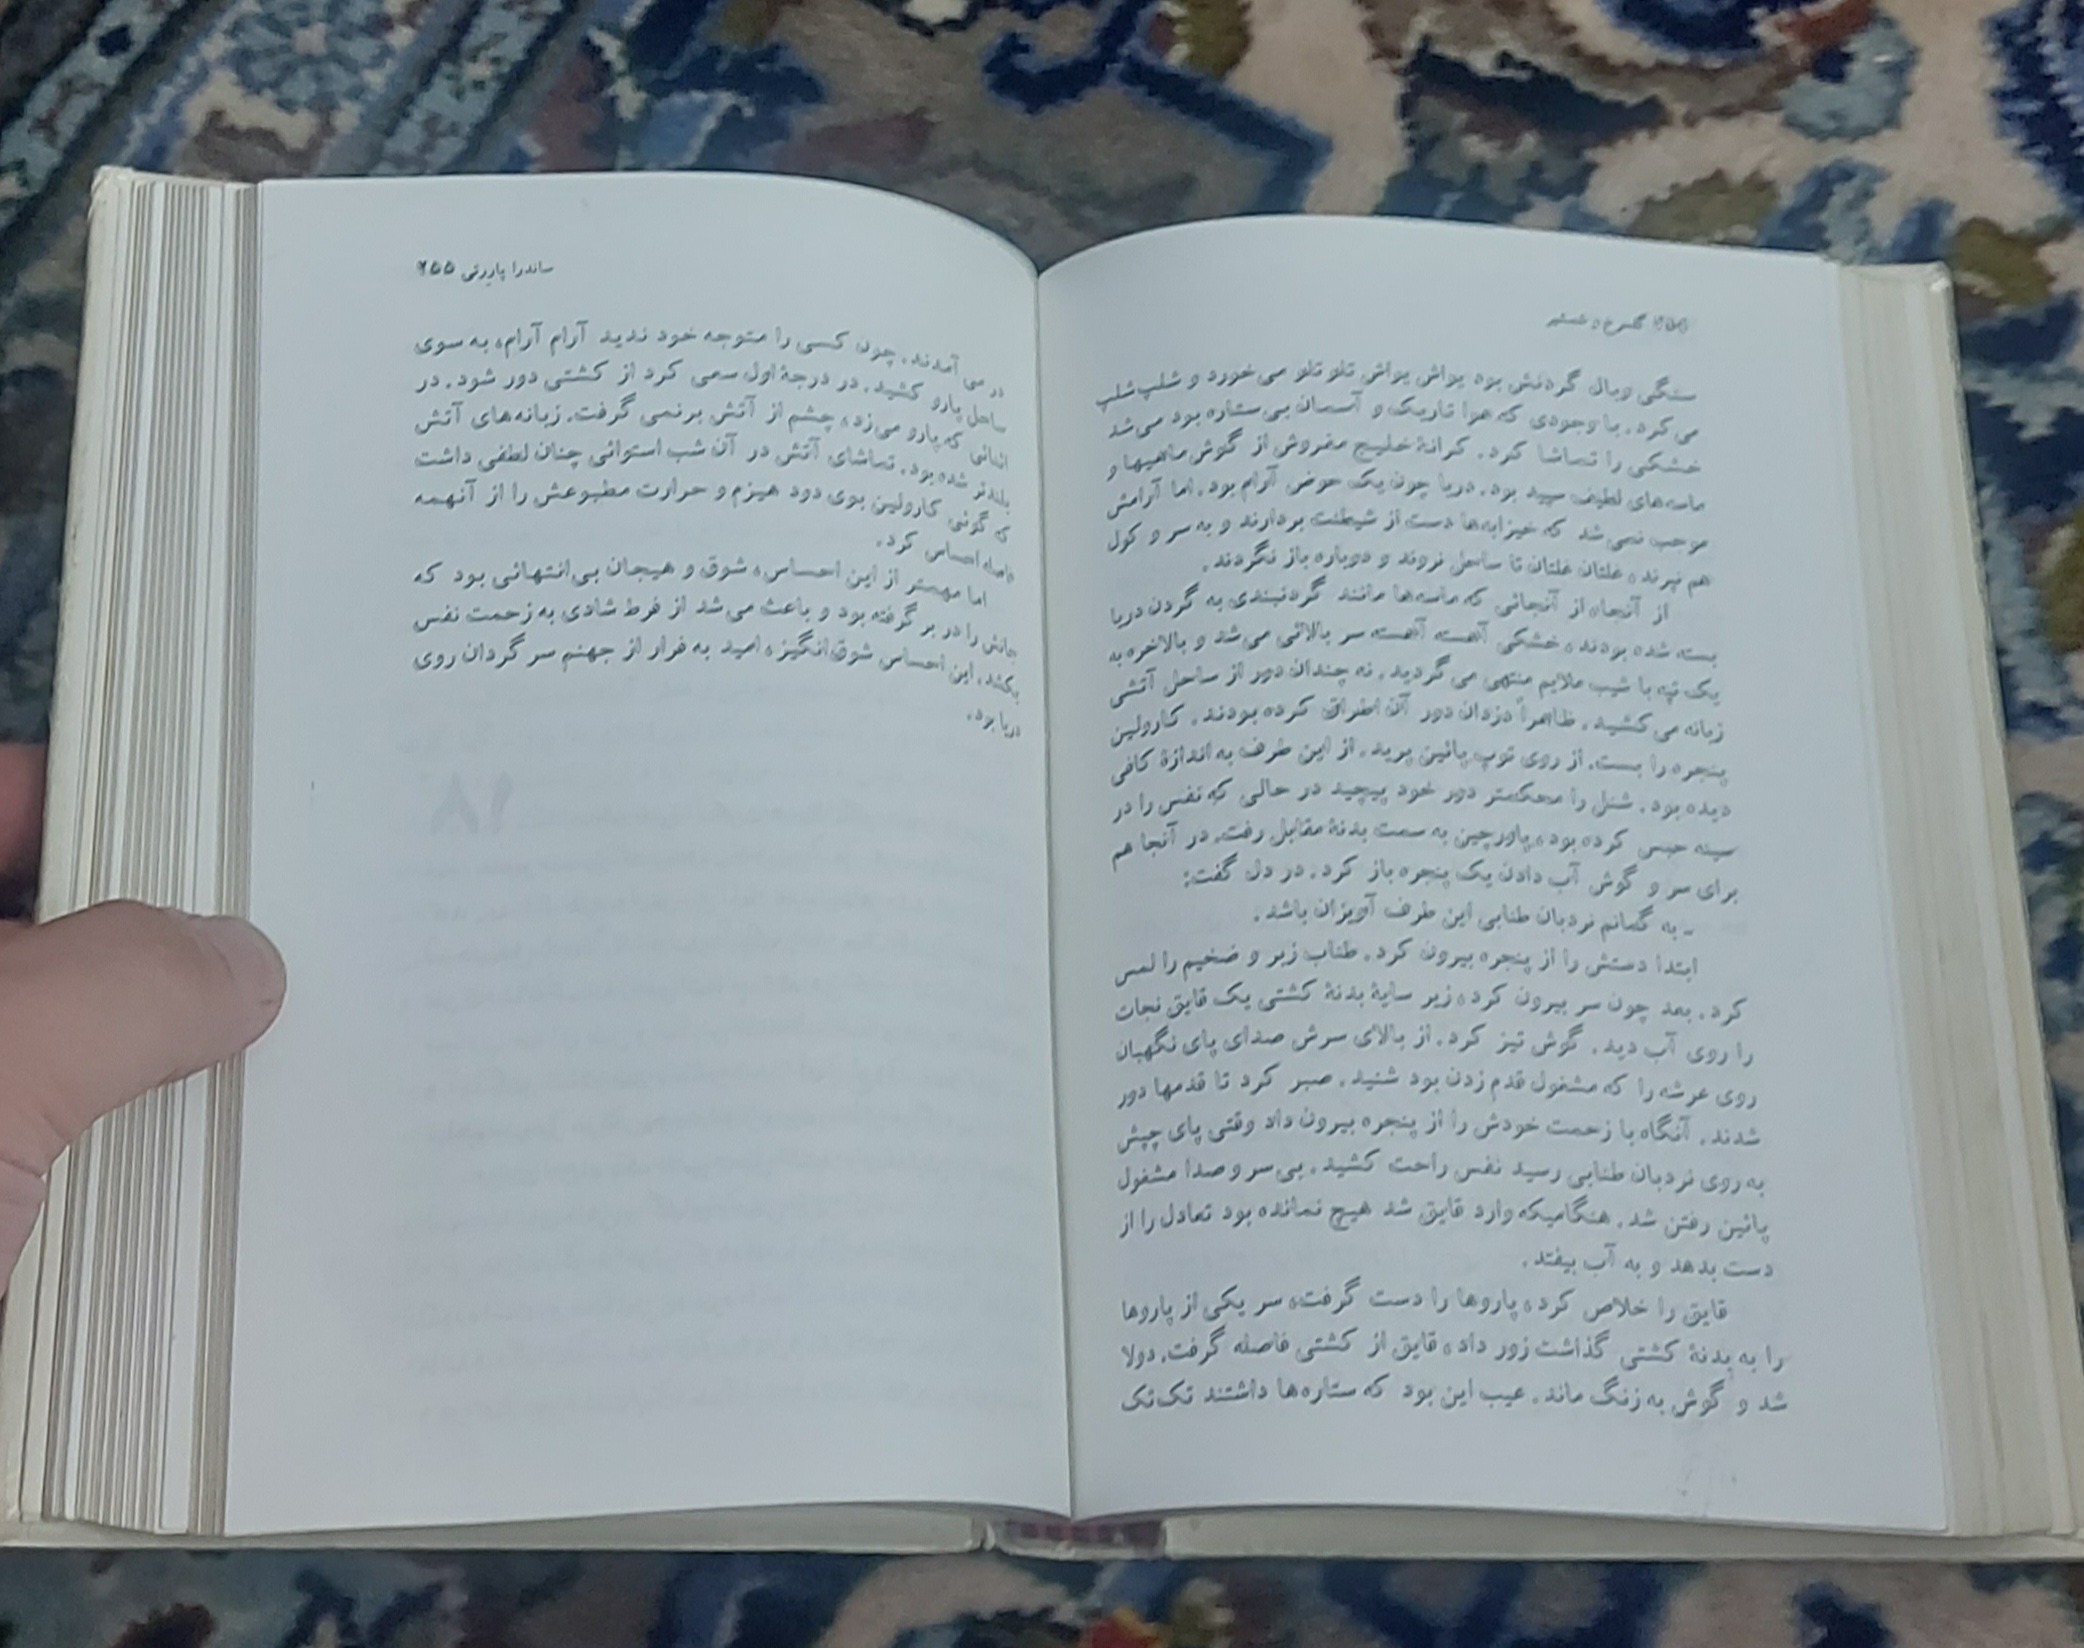 گلسرخ و شمشیر
سنگی وبال گردنش بود یواش یواش تلو تلو می‌خورد و شلپ شلپ
می‌کرد. با وجودی که هوا تاریک و آسمان بی‌ستاره بود می‌شد
خشکی را تماشا کرد. کرانهٔ خلیج مفروش از گوش ماهیها و
ماسه‌های لطیف سپید بود. دریا چون یک حوض آرام بود. اما آرامش
موجب نمی‌شد که خیزابه‌ها دست از شیطنت بردارند و به سر و کول
هم نپرند، غلتان غلتان تا ساحل نروند و دوباره باز نگردند.
از آنجا، از آنجائی که ماسه‌ها مانند گردنبندی به گردن دریا
بسته شده بودند، خشکی آهسته آهسته سر بالائی می‌شد و بالاخره به
یک تپه با شیب ملایم منتهی می‌گردید. نه چندان دور از ساحل آتشی
زبانه می‌کشید. ظاهراً دزدان دور آن اطراق کرده بودند. کارولین
پنجره را بست. از روی توپ پائین پرید. از این طرف به اندازهٔ کافی
دیده بود. شنل را محکمتر دور خود پیچید در حالی که نفس را در
سینه حبس کرده بود، پاورچین به سمت بدنهٔ مقابل رفت. در آنجا هم
برای سر و گوش آب دادن یک پنجره باز کرد. در دل گفت:
ـ به گمانم نردبان طنابی این طرف آویزان باشد.
ابتدا دستش را از پنجره بیرون کرد. طناب زبر و ضخیم را لمس
کرد. بعد چون سر بیرون کرد، زیر سایهٔ بدنهٔ کشتی یک قایق نجات
را روی آب دید. گوش تیز کرد. از بالای سرش صدای پای نگهبان
روی عرشه را که مشغول قدم زدن بود شنید. صبر کرد تا قدمها دور
شدند. آنگاه با زحمت خودش را از پنجره بیرون داد وقتی پای چپش
به روی نردبان طنابی رسید نفس راحت کشید. بی‌سر و صدا مشغول
پائین رفتن شد. هنگامیکه وارد قایق شد هیچ نمانده بود تعادل را از
دست بدهد و به آب بیفتد.
قایق را خلاص کرد، پاروها را دست گرفت، سر یکی از پاروها
را به بدنهٔ کشتی گذاشت زور داد، قایق از کشتی فاصله گرفت. دولا
شد و گوش به زنگ ماند. عیب این بود که ستاره‌ها داشتند تک‌تک
ساندرا پارتی ۲۵۵
در می‌آمدند. چون کسی را متوجه خود ندید آرام آرام، به سوی
ساحل پارو کشید. در درجهٔ اول سعی کرد از کشتی دور شود. در
اثنائی که پارو می‌زد، چشم از آتش برنمی گرفت. زبانه‌های آتش
بلندتر شده بود. تماشای آتش در آن شب استوائی چنان لطفی داشت
که گوئی کارولین بوی دود هیزم و حرارت مطبوعش را از آنهمه
فاصله احساس کرد.
اما مهمتر از این احساس، شوق و هیجان بی‌انتهائی بود که
جانش را در بر گرفته بود و باعث می‌شد از فرط شادی به زحمت نفس
بکشد. این احساس شوق‌انگیز، امید به فرار از جهنم سرگردان روی
دریا بود.